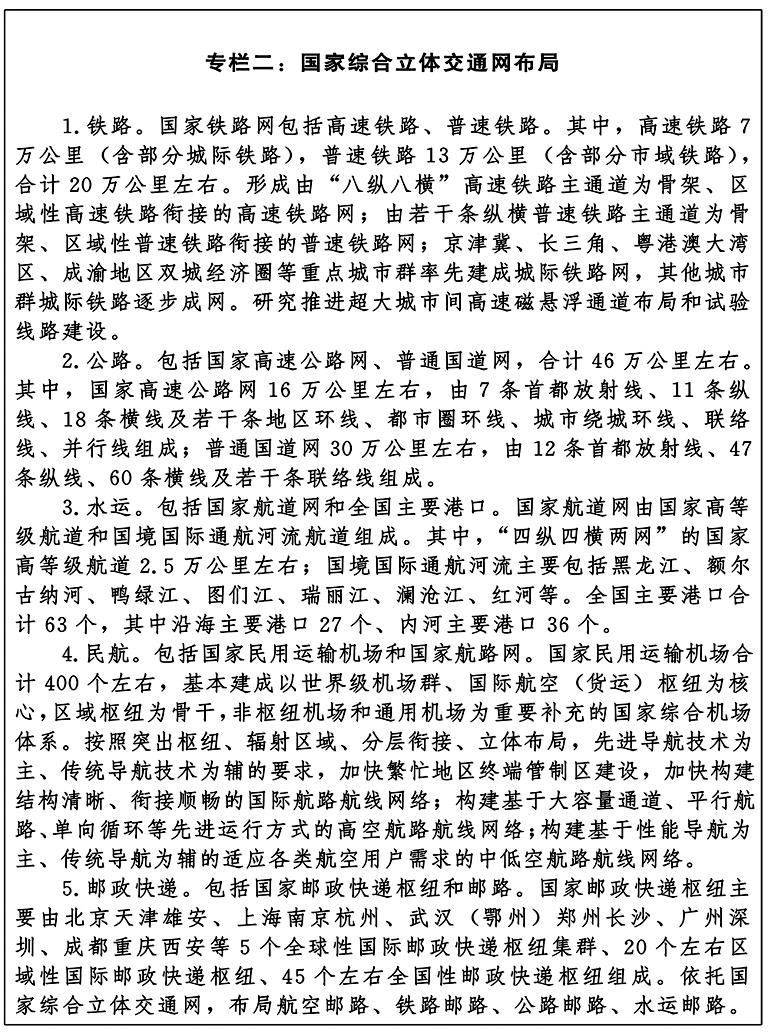 专栏二：国家综合立体交通网布局
1.铁路。国家铁路网包括高速铁路、普速铁路。其中，高速铁路 7
万公里（含部分城际铁路），普速铁路 13 万公里（含部分市域铁路），
合计 20 万公里左右。形成由“八纵八横”高速铁路主通道为骨架、区
域性高速铁路衔接的高速铁路网；由若干条纵横普速铁路主通道为骨
架、区域性普速铁路衔接的普速铁路网；京津冀、长三角、粤港澳大湾
区、成渝地区双城经济圈等重点城市群率先建成城际铁路网，其他城市
群城际铁路逐步成网。研究推进超大城市间高速磁悬浮通道布局和试验
线路建设。
2.公路。包括国家高速公路网、普通国道网，合计 46 万公里左右。
其中，国家高速公路网 16 万公里左右，由 7 条首都放射线、11 条纵
线、18 条横线及若干条地区环线、都市圈环线、城市绕城环线、联络
线、并行线组成；普通国道网 30 万公里左右，由 12 条首都放射线、47
条纵线、60 条横线及若干条联络线组成。
3.水运。包括国家航道网和全国主要港口。国家航道网由国家高等
级航道和国境国际通航河流航道组成。其中，“四纵四横两网”的国家
高等级航道 2.5 万公里左右；国境国际通航河流主要包括黑龙江、额尔
古纳河、鸭绿江、图们江、瑞丽江、澜沧江、红河等。全国主要港口合
计 63 个，其中沿海主要港口 27 个、内河主要港口 36 个。
4.民航。包括国家民用运输机场和国家航路网。国家民用运输机场合
计 400 个左右，基本建成以世界级机场群、国际航空（货运）枢纽为核
心，区域枢纽为骨干，非枢纽机场和通用机场为重要补充的国家综合机场
体系。按照突出枢纽、辐射区域、分层衔接、立体布局，先进导航技术为
主、传统导航技术为辅的要求，加快繁忙地区终端管制区建设，加快构建
结构清晰、衔接顺畅的国际航路航线网络；构建基于大容量通道、平行航
路、单向循环等先进运行方式的高空航路航线网络；构建基于性能导航为
主、传统导航为辅的适应各类航空用户需求的中低空航路航线网络。
5.邮政快递。包括国家邮政快递枢纽和邮路。国家邮政快递枢纽主
要由北京天津雄安、上海南京杭州、武汉（鄂州）郑州长沙、广州深
圳、成都重庆西安等 5 个全球性国际邮政快递枢纽集群、20 个左右区
域性国际邮政快递枢纽、45 个左右全国性邮政快递枢纽组成。依托国
家综合立体交通网，布局航空邮路、铁路邮路、公路邮路、水运邮路。